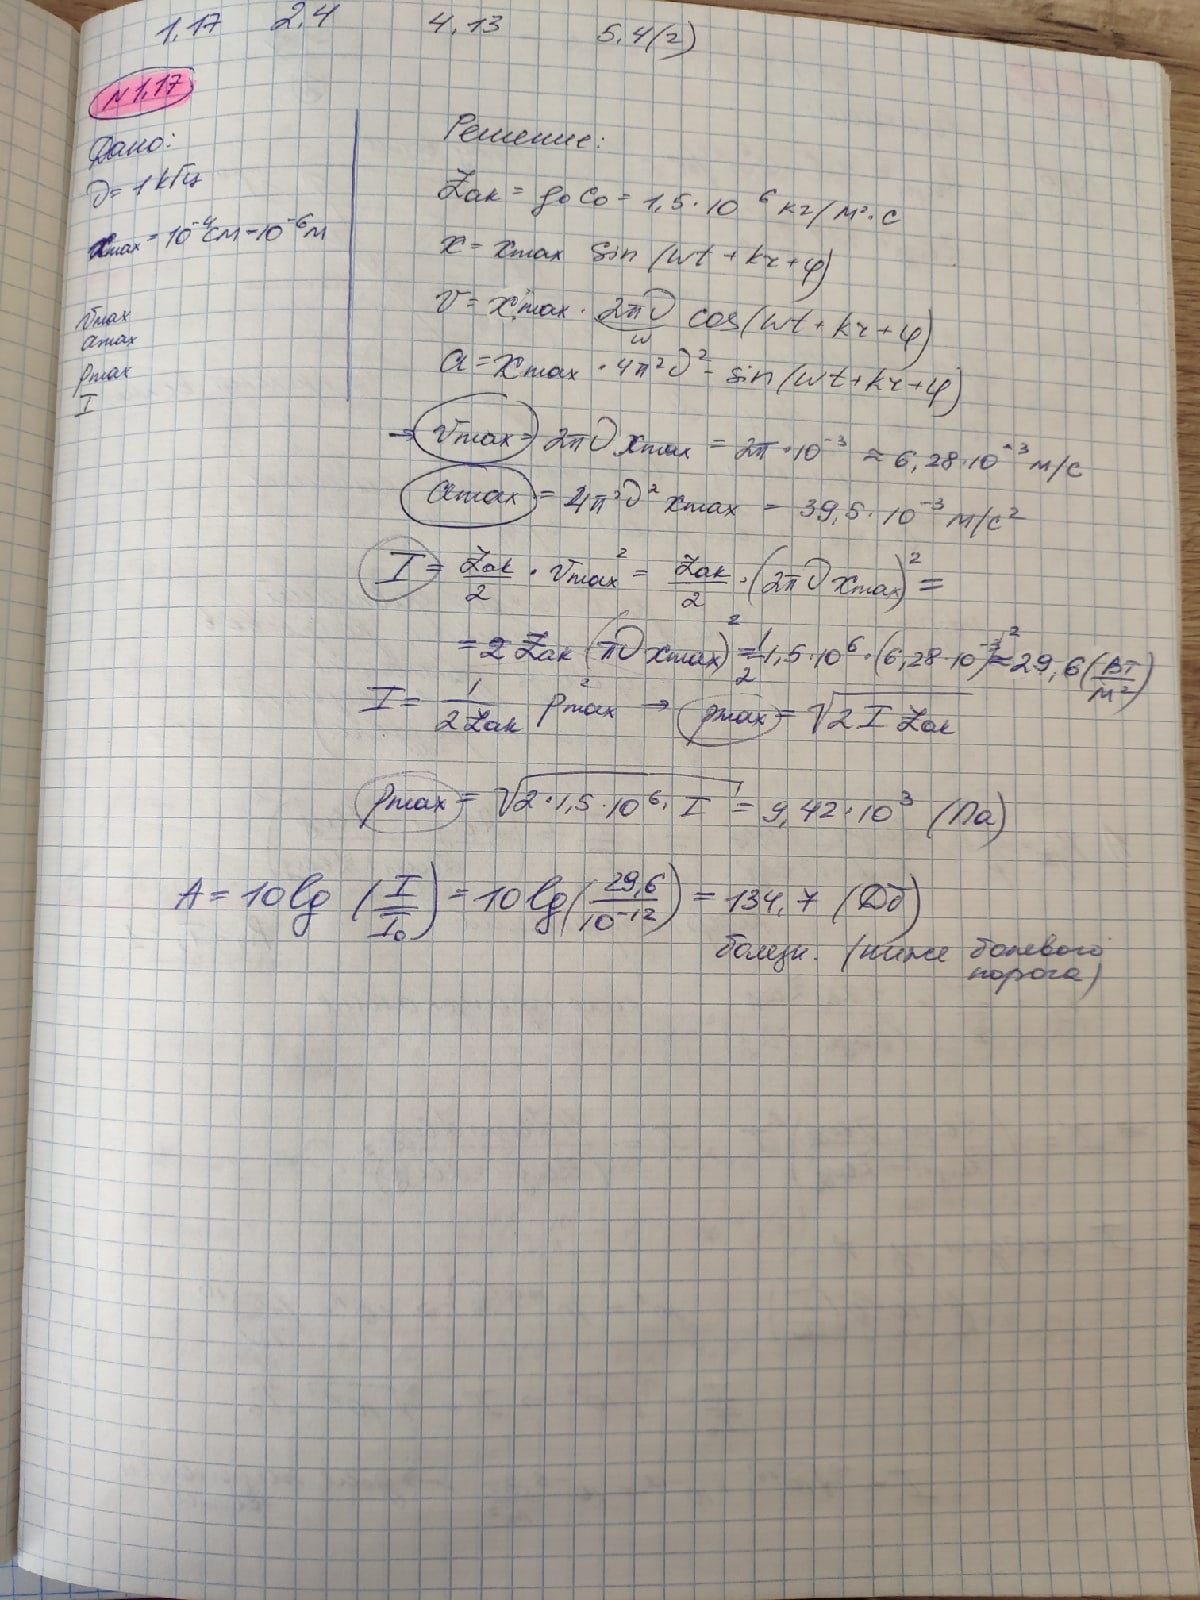 1.17 2.4 4.13 5.4(2)
N 1.17
Дано:
ν = 1 кГц
xmax = 10⁻⁴ см = 10⁻⁶ м
vmax
amax
pmax
I
Решение:
Zак = ρ₀c₀ = 1,5·10⁶ кг/м²·с
x = xmax sin(ωt + kr + φ)
v = xmax · 2πν cos(ωt + kr + φ)
ω
a = xmax · 4π²ν² - sin(ωt + kr + φ)
→ vmax = 2πν xmax = 2π·10⁻³ ≈ 6,28·10⁻³ м/с
amax = 4π²ν² xmax = 39,5·10⁻³ м/с²
I = Zак/2 · vmax² = Zак/2 · (2πν xmax)² =
= 2 Zак (πν xmax)² = 1/2 1,5·10⁶·(6,28·10⁻³)² ≈ 29,6 (Вт/м²)
I = 1/(2Zак) pmax² → pmax = √(2 I Zак)
pmax = √(2·1,5·10⁶· I) = 9,42·10³ (Па)
A = 10 lg (I/I₀) = 10 lg (29,6/10⁻¹²) = 134,7 (Дб)
болезн. (ниже болевого
порога)